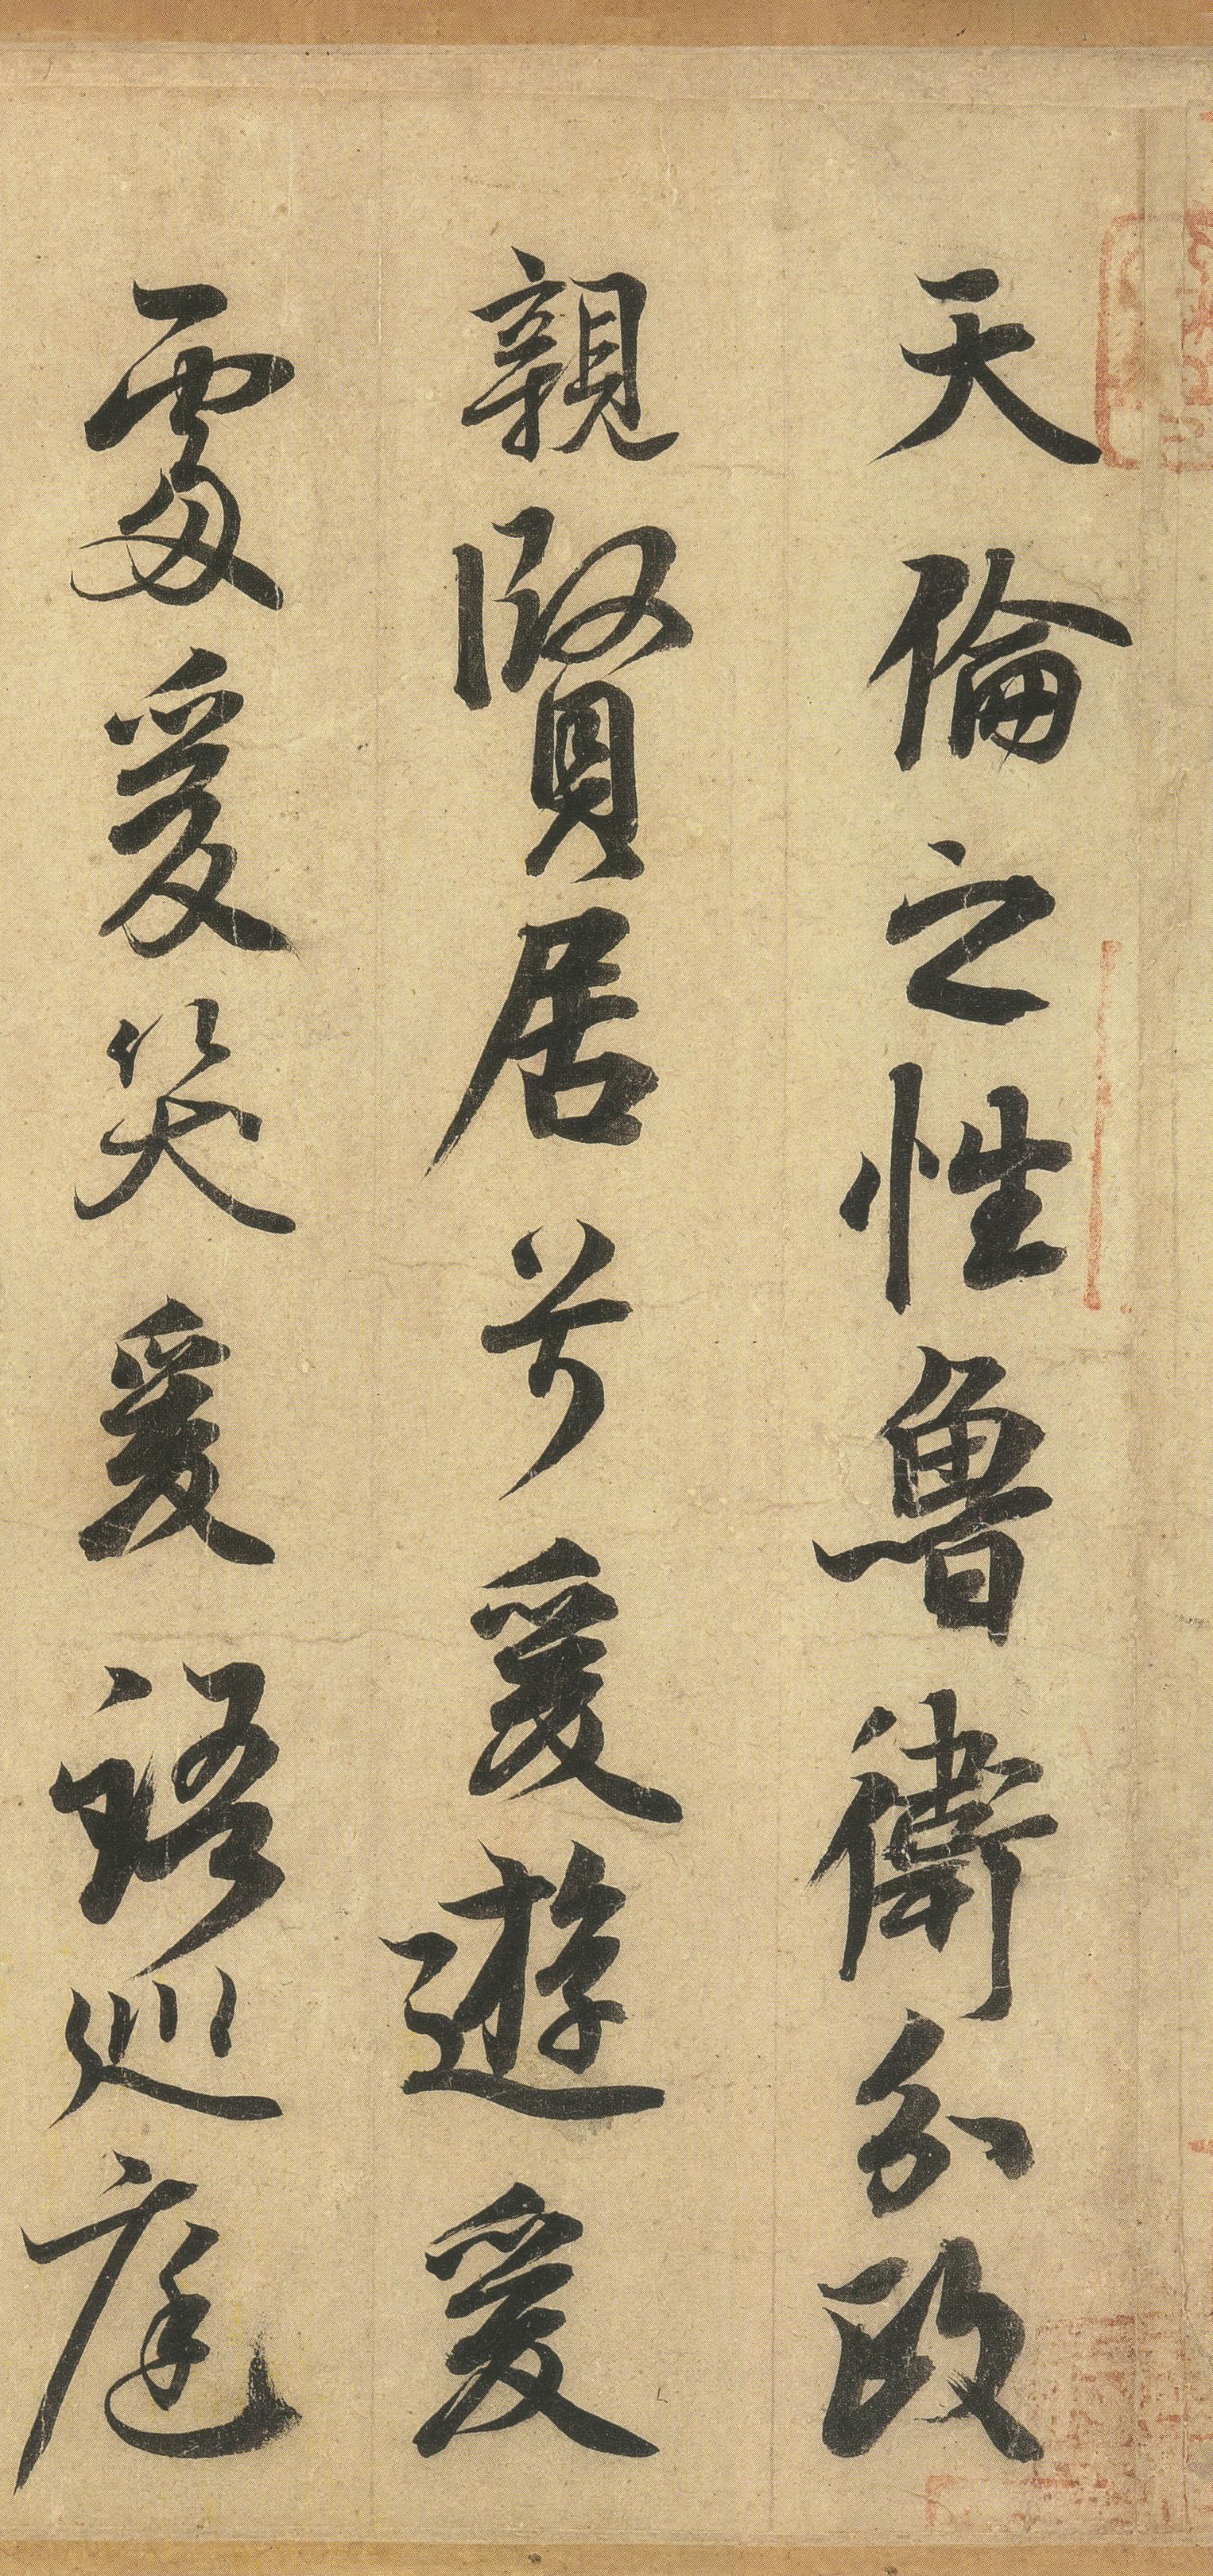 天倫之性魯衛分政
親賢居前爰遊爰
處爰笑爰語巡庭